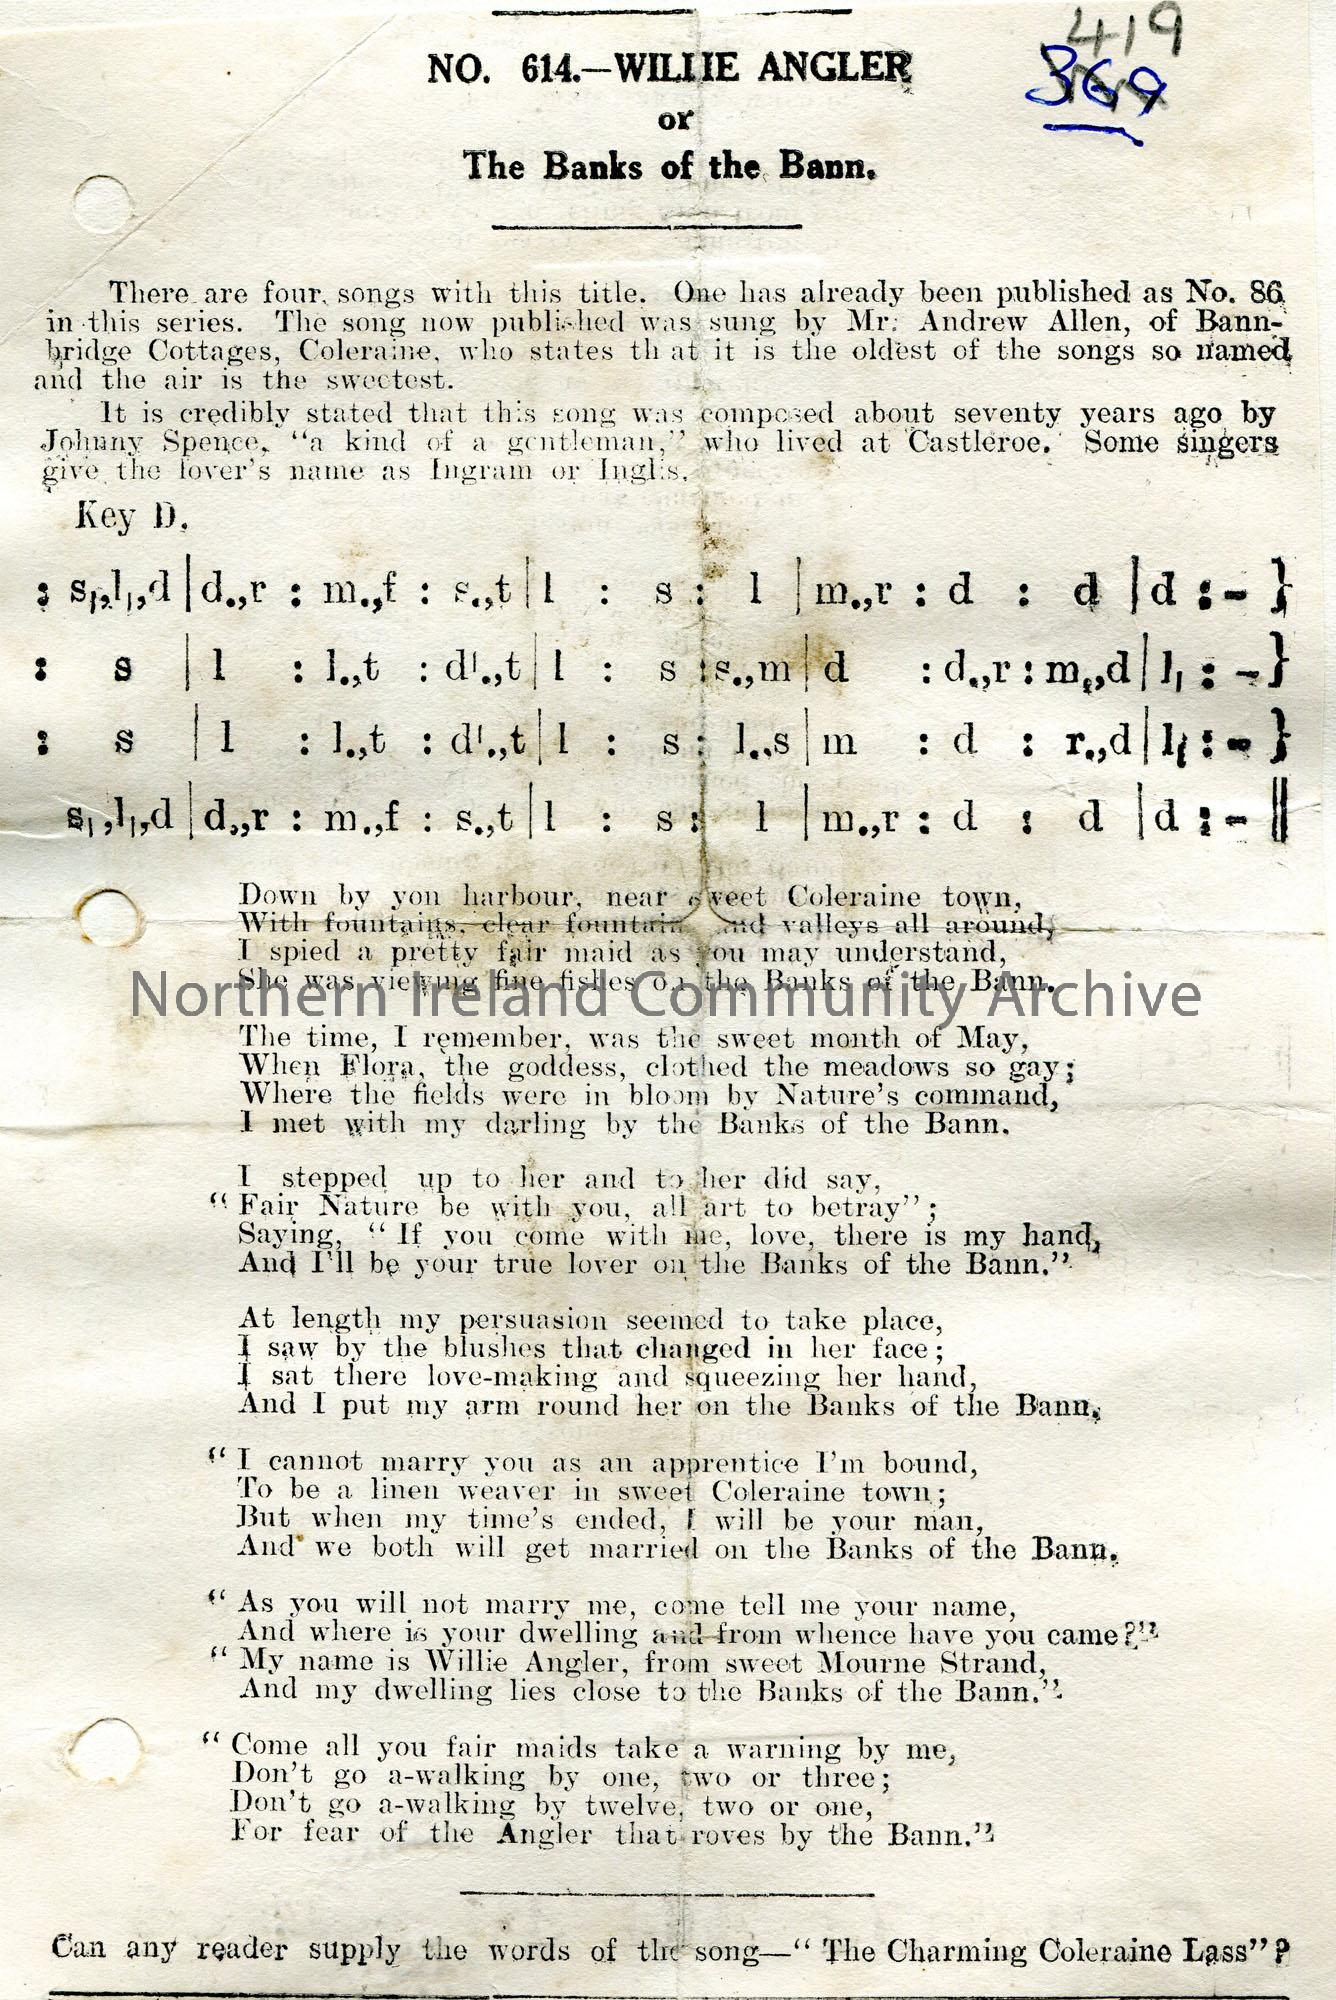 419
369
NO. 614.—WILLIE ANGLER
or
The Banks of the Bann.
There are four songs with this title. One has already been published as No. 86
in this series. The song now published was sung by Mr. Andrew Allen, of Bann-
bridge Cottages, Coleraine, who states that it is the oldest of the songs so named
and the air is the sweetest.
It is credibly stated that this song was composed about seventy years ago by
Johnny Spence, "a kind of a gentleman," who lived at Castleroe. Some singers
give the lover's name as Ingram or Inglis.
Key D.
: s₁,l₁,d | d.,r : m.,f : s.,t | l : s : l | m.,r : d : d | d : - }
: s | l : l.,t : d'.,t | l : s : s.,m | d : d.,r : m.,d | l₁ : - }
: s | l : l.,t : d'.,t | l : s : l.,s | m : d : r.,d | l₁ : - }
s₁,l₁,d | d.,r : m.,f : s.,t | l : s : l | m.,r : d : d | d : - ||
Down by yon harbour, near sweet Coleraine town,
With fountains, clear fountains and valleys all around,
I spied a pretty fair maid as you may understand,
She was viewing fine fishes on the Banks of the Bann.
Northern Ireland Community Archive
The time, I remember, was the sweet month of May,
When Flora, the goddess, clothed the meadows so gay;
Where the fields were in bloom by Nature's command,
I met with my darling by the Banks of the Bann.
I stepped up to her and to her did say,
"Fair Nature be with you, all art to betray";
Saying, "If you come with me, love, there is my hand,
And I'll be your true lover on the Banks of the Bann."
At length my persuasion seemed to take place,
I saw by the blushes that changed in her face;
I sat there love-making and squeezing her hand,
And I put my arm round her on the Banks of the Bann.
"I cannot marry you as an apprentice I'm bound,
To be a linen weaver in sweet Coleraine town;
But when my time's ended, I will be your man,
And we both will get married on the Banks of the Bann.
"As you will not marry me, come tell me your name,
And where is your dwelling and from whence have you came?"
"My name is Willie Angler, from sweet Mourne Strand,
And my dwelling lies close to the Banks of the Bann."
"Come all you fair maids take a warning by me,
Don't go a-walking by one, two or three;
Don't go a-walking by twelve, two or one,
For fear of the Angler that roves by the Bann."
Can any reader supply the words of the song—"The Charming Coleraine Lass"?